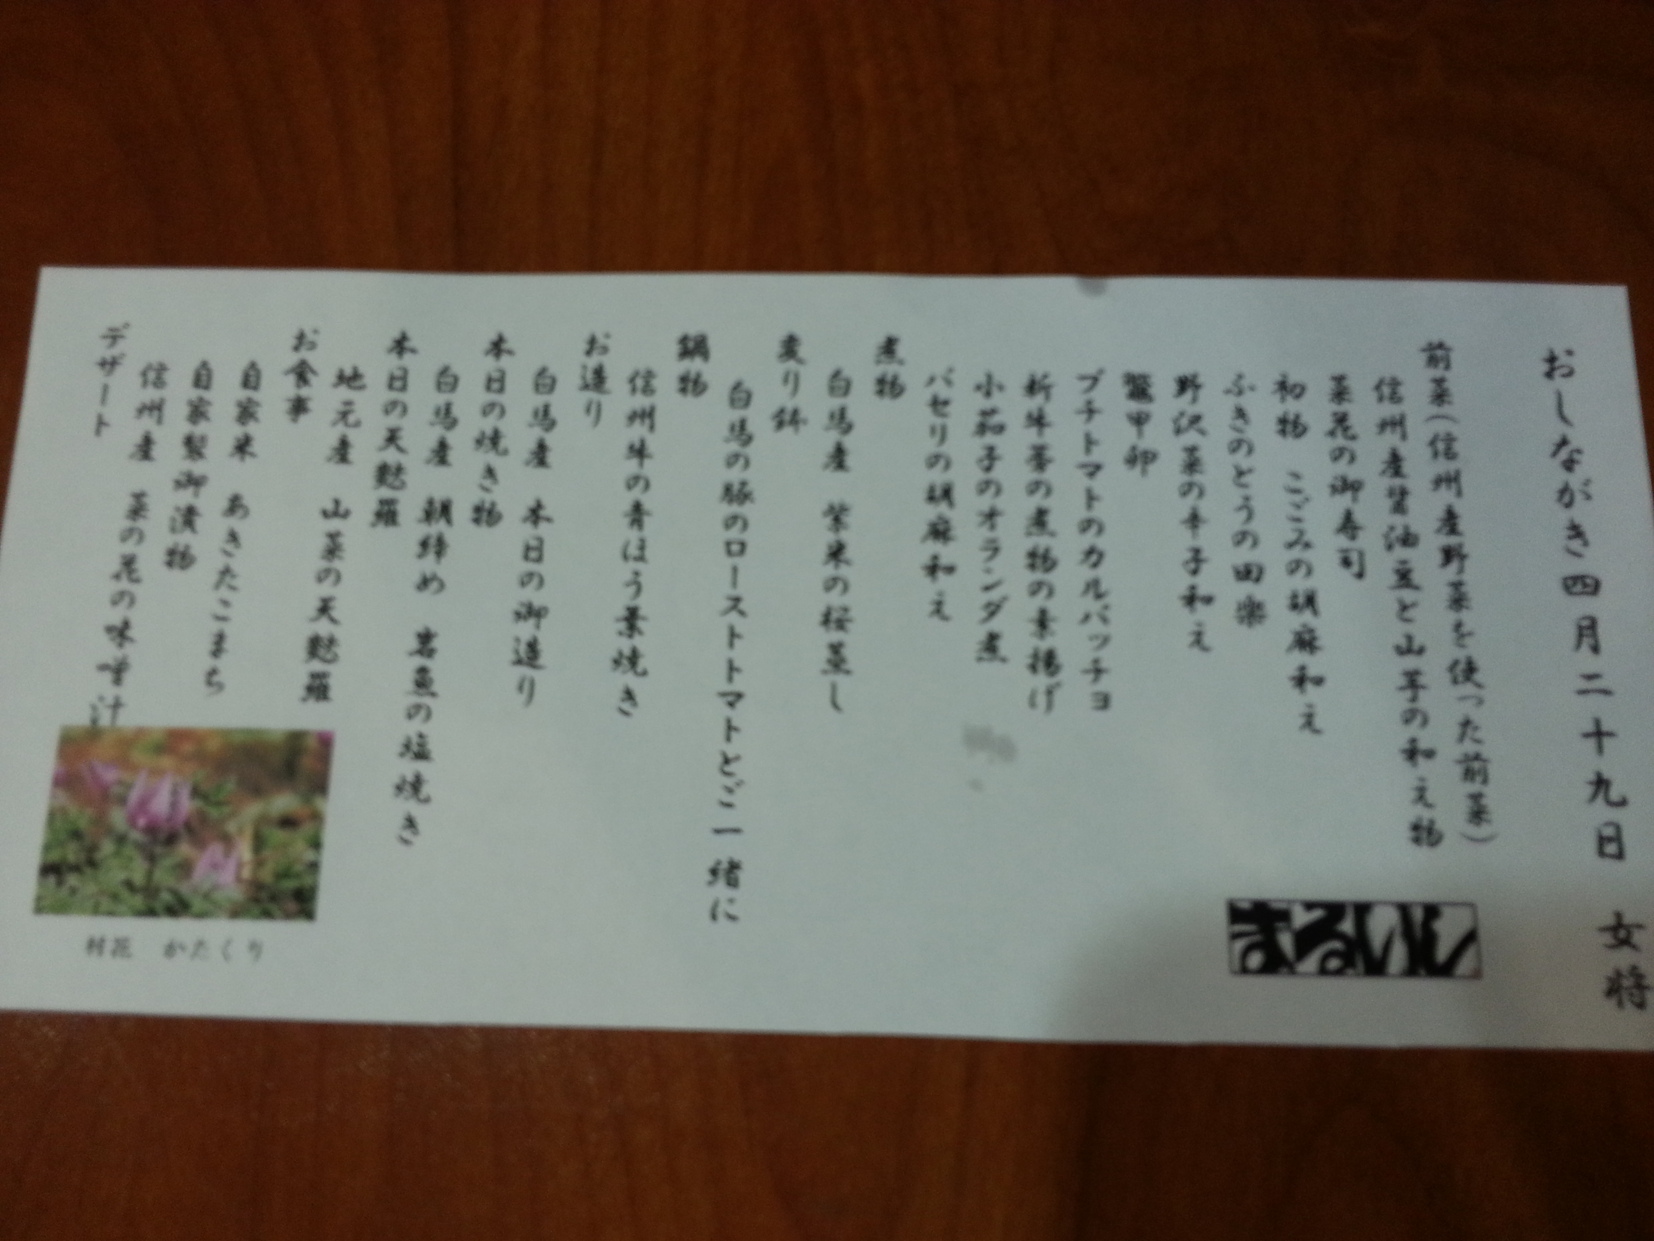 おしながき四月二十九日 女将
前菜(信州産野菜を使った前菜)
信州産醤油豆と山芋の和え物
菜花の御寿司
初物 こごみの胡麻和え
ふきのとうの田楽
野沢菜の辛子和え
鼈甲卵
プチトマトのカルパッチョ
新牛蒡の煮物の素揚げ
小茄子のオランダ煮
パセリの胡麻和え
煮物
白馬産 紫米の桜蒸し
変り鉢
白馬の豚のローストトマトとご一緒に
鍋物
信州牛の青ほう葉焼き
お造り
白馬産 本日の御造り
本日の焼き物
白馬産 朝締め 岩魚の塩焼き
本日の天麩羅
地元産 山菜の天麩羅
お食事
自家米 あきたこまち
自家製御漬物
信州産 菜の花の味噌汁
デザート
まるいし
村花 かたくり